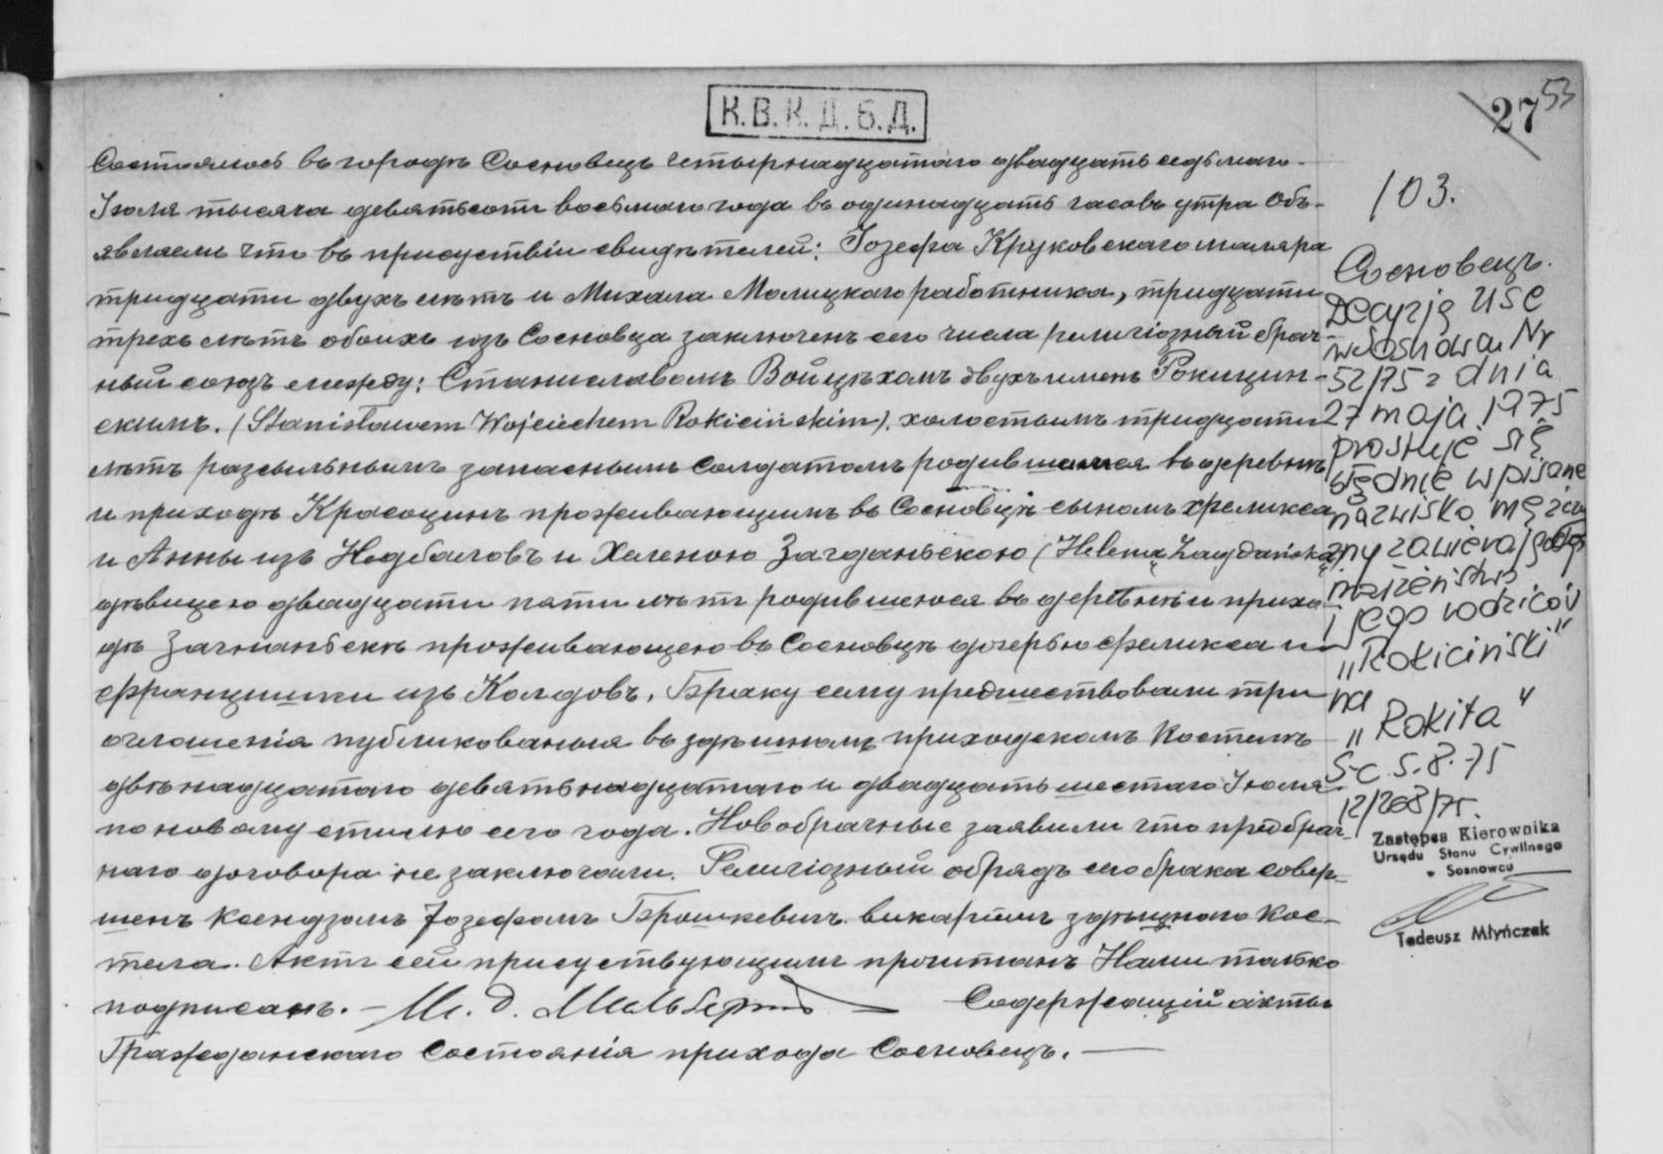 К.В.К.Д.Б.Д.
27 53
Состоялось въ городѣ Сосновецъ четырнадцатаго двадцать седьмаго
Іюля тысяча девятьсотъ восьмаго года въ одинадцать часовъ утра Объ-
являемъ что въ присутствіи свидѣтелей: Іозефа Круковскаго маляра
тридцати двухъ лѣтъ и Михала Молицкаго работника, тридцати
трехъ лѣтъ обоихъ изъ Сосновца заключенъ сего числа религіозный брач-
ный союзъ между: Станиславомъ Войцѣхомъ двухъ именъ Рокицин-
скимъ. (Stanisławem Wojciechem Rokicińskim). холостымъ тридцати
лѣтъ разсыльнымъ запаснымъ солдатомъ родившимся въ деревнѣ
и приходѣ Красоцинъ проживающимъ въ Сосновцѣ сыномъ Феликса
и Анны изъ Недбаловъ и Хеленою Загданьскою (Helena Zagdańska)
дѣвицею двадцати пяти лѣтъ родившеюся въ деревнѣ и прихо-
дѣ Загнаньскѣ проживающею въ Сосновцѣ дочерью Феликса и
Францишки изъ Колдовъ. Браку сему предшествовали три
оглошенія публикованыя въ здѣшномъ приходскомъ Костелѣ
двѣнадцатаго девятьнадцатаго и двадцать шестаго Іюля
по новому стилю сего года. Новобрачные заявили что предбрач-
наго договора не заключали. Религіозный обрядъ сего брака совер-
шенъ Ксендзомъ Іозефомъ Брошкевичъ викаріемъ здѣшного Кос-
тела. Актъ сей присутствующимъ прочитанъ Нами только
подписанъ. – Содержащій акты
Гражданскаго Состоянія прихода Сосновецъ. —
103.
Сосновецъ.
Decyzją USC
Włoszczowa Nr
52/75 z dnia
27 maja 1975
prostuje się
błędnie wpisane
nazwisko mężczy
zny zawierającego
małżeństwo
i jego rodziców
"Rokiciński"
na
"Rokita"
S-c 5.8.75
12/208/75.
Zastępca Kierownika
Urzędu Stanu Cywilnego
w Sosnowcu
Tadeusz Młyńczak